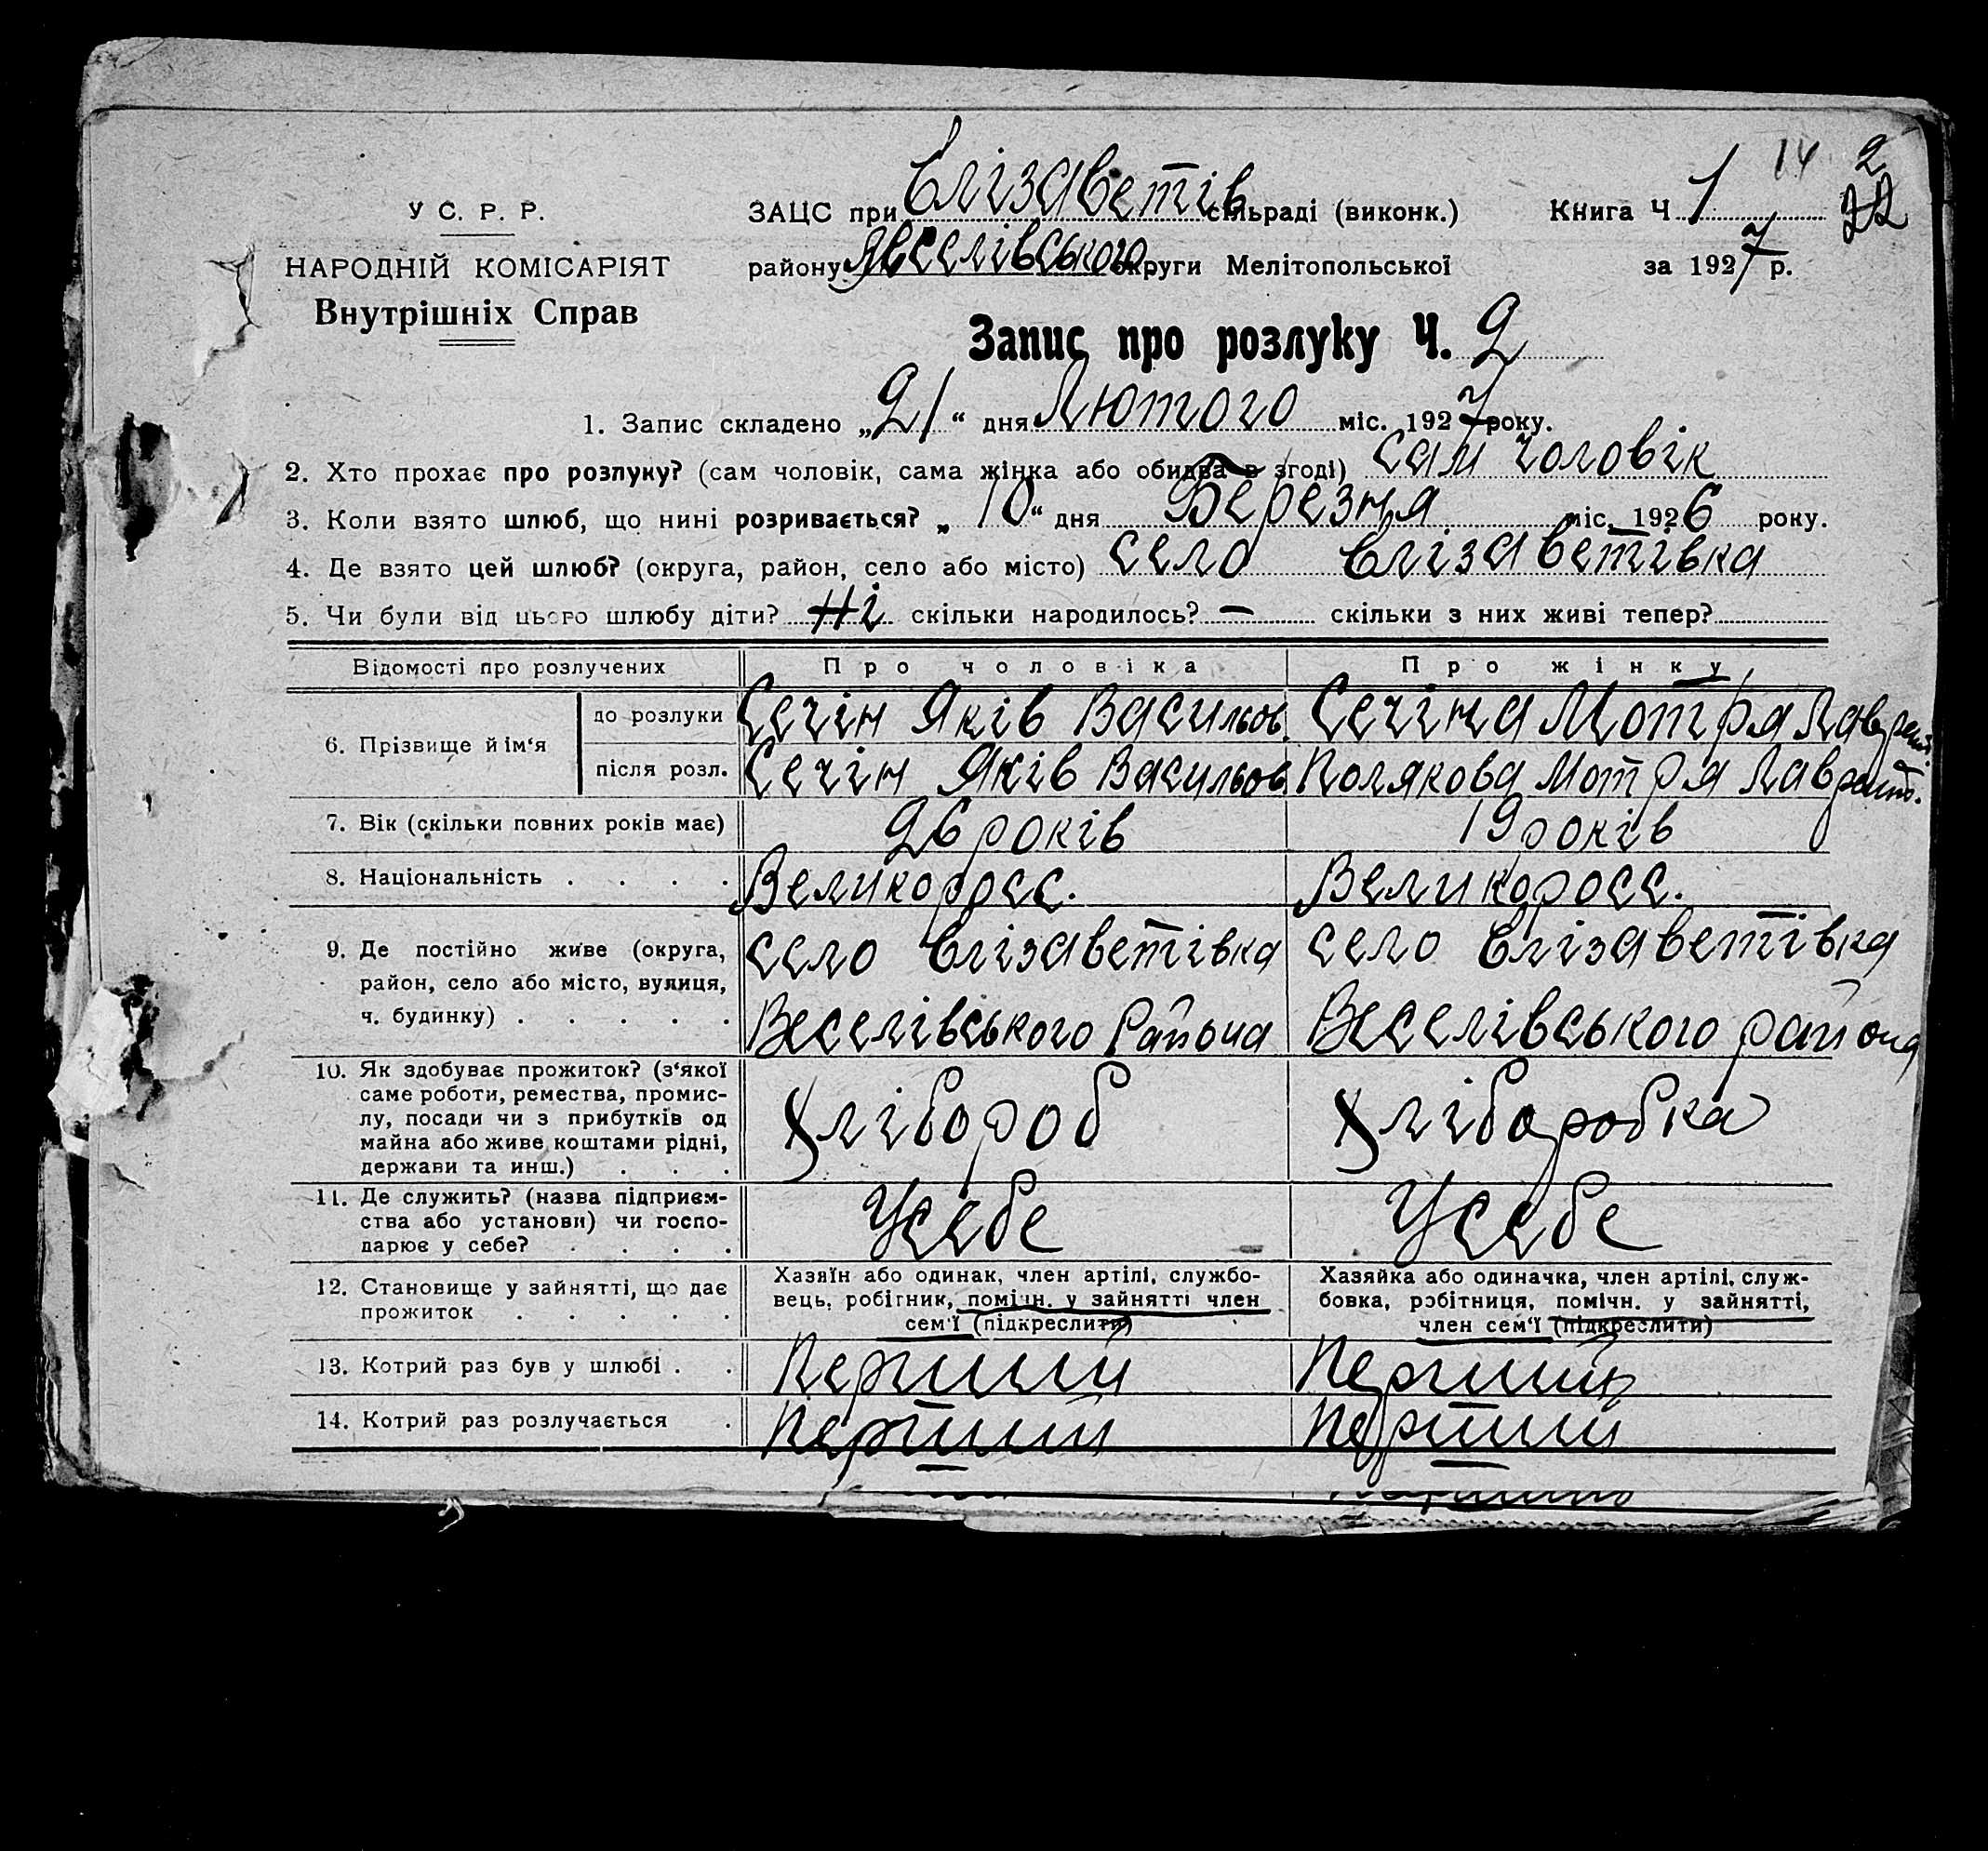 14 2
22
У С. Р. Р.
НАРОДНІЙ КОМІСАРІЯТ
Внутрішніх Справ
ЗАЦС при Єлізаветів сільраді (виконк.) Книга Ч 1
району Веселівського округи Мелітопольської за 1927 р.
Запис про розлуку Ч. 2
1. Запис складено „21“ дня Лютого міс. 1927 року.
2. Хто прохає про розлуку? (сам чоловік, сама жінка або обидва в згоді) сам чоловік
3. Коли взято шлюб, що нині розривається? „10“ дня Березня міс. 1926 року.
4. Де взято цей шлюб? (округа, район, село або місто) село Єлізаветівка
5. Чи були від цього шлюбу діти? Ні скільки народилось? — скільки з них живі тепер?
Відомості про розлучених Про чоловіка Про жінку
6. Прізвище й ім‘я
до розлуки Сечін Яків Васильов. Сечіна Мотря Лаврент.
після розл. Сечін Яків Васильов. Полякова Мотря Лаврент.
7. Вік (скільки повних років має) 26 років 19 років
8. Національність . . . . Великоросс. Великоросс.
9. Де постійно живе (округа, село Єлізаветівка село Єлізаветівка
район, село або місто, вулиця,
ч. будинку) . . . . . Веселівського Района Веселівського района
10. Як здобуває прожиток? (з‘якої
саме роботи, ремества, промис-
лу, посади чи з прибутків од Хлібороб Хліборобка
майна або живе коштами рідні,
держави та инш.) . . .
11. Де служить? (назва підприєм-
ства або установи) чи госпо- Усебе Усебе
дарює у себе? . . . .
12. Становище у зайнятті, що дає
прожиток . . . . .
Хазяїн або одинак, член артілі, службо-
вець, робітник, помічн. у зайнятті член
сем‘ї (підкреслити)
Хазяйка або одиначка, член артілі, служ-
бовка, робітниця, помічн. у зайнятті,
член сем‘ї (підкреслити)
13. Котрий раз був у шлюбі . . Перший Перший
14. Котрий раз розлучається . Перший Перший